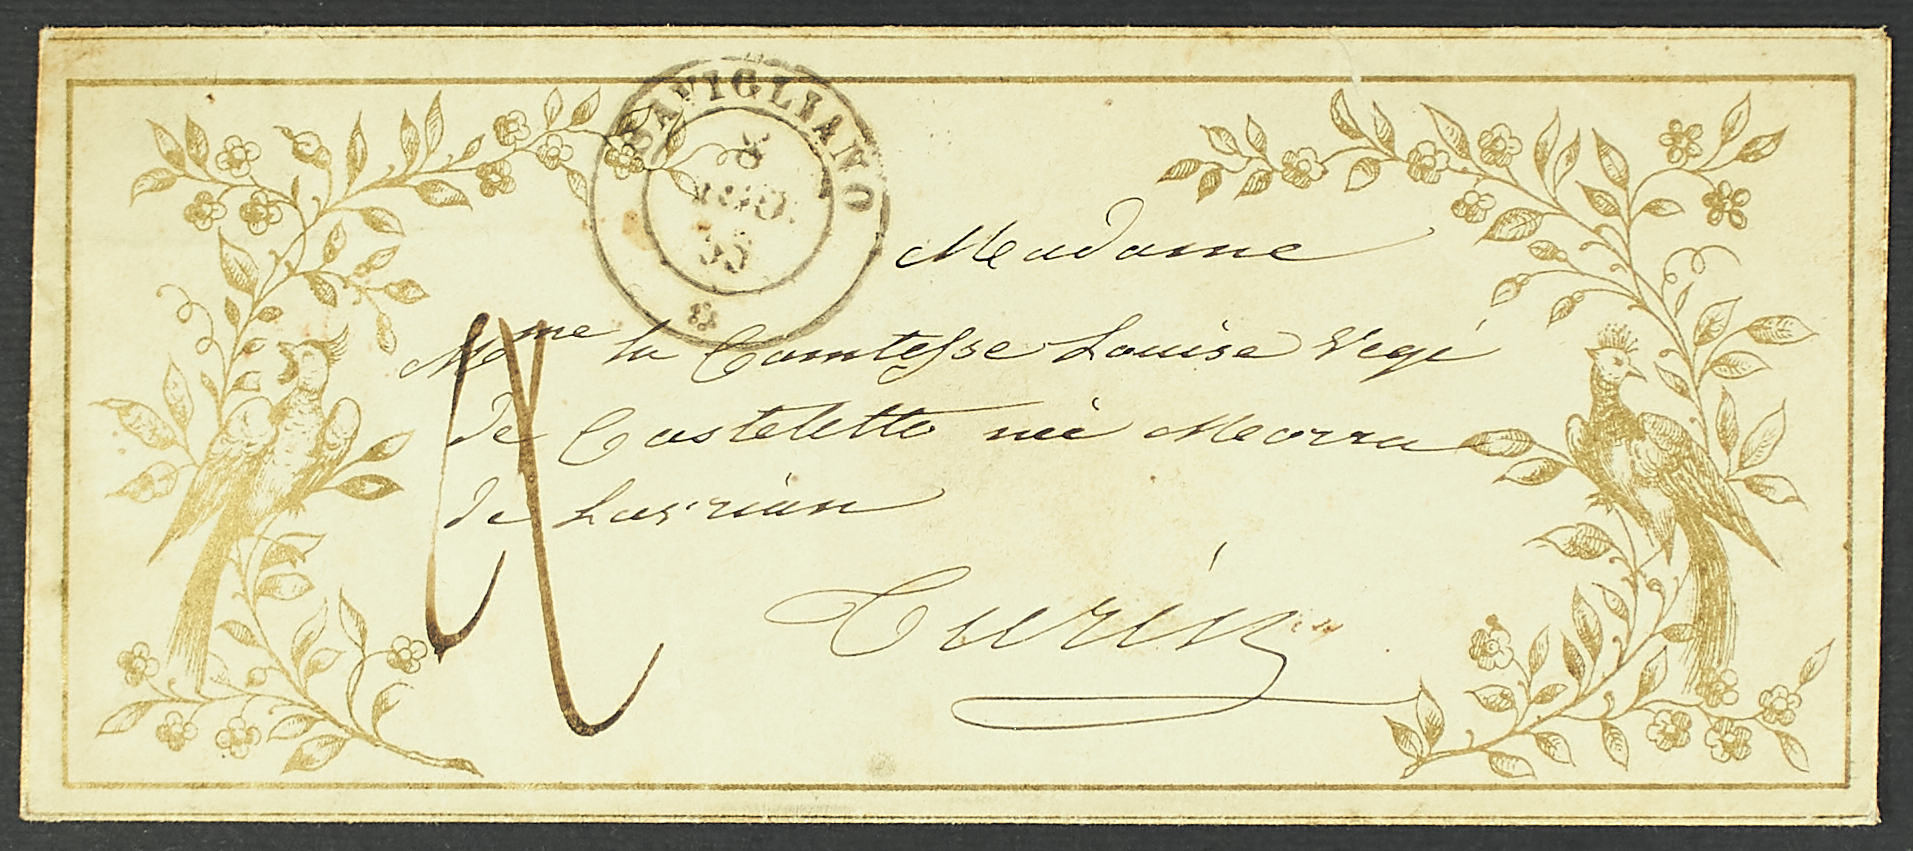 SAVIGLIANO
8
AGO.
55
Madame
Mme la Comtesse Louise Vegi
de Casteletto née Morra
de Lavrian
Turin